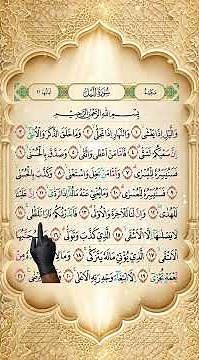 مكية سورة الليل آياتها ٢١
بسم الله الرحمن الرحيم
وَاللَّيْلِ إِذَا يَغْشَىٰ ١ وَالنَّهَارِ إِذَا تَجَلَّىٰ ٢ وَمَا خَلَقَ الذَّكَرَ وَالْأُنثَىٰ ٣
إِنَّ سَعْيَكُمْ لَشَتَّىٰ ٤ فَأَمَّا مَنْ أَعْطَىٰ وَاتَّقَىٰ ٥ وَصَدَّقَ بِالْحُسْنَىٰ ٦
فَسَنُيَسِّرُهُ لِلْيُسْرَىٰ ٧ وَأَمَّا مَن بَخِلَ وَاسْتَغْنَىٰ ٨ وَكَذَّبَ بِالْحُسْنَىٰ ٩
فَسَنُيَسِّرُهُ لِلْعُسْرَىٰ ١٠ وَمَا يُغْنِي عَنْهُ مَالُهُ إِذَا تَرَدَّىٰ ١١ إِنَّ عَلَيْنَا
لَلْهُدَىٰ ١٢ وَإِنَّ لَنَا لَلْآخِرَةَ وَالْأُولَىٰ ١٣ فَأَنذَرْتُكُمْ نَارًا تَلَظَّىٰ ١٤
لَا يَصْلَاهَا إِلَّا الْأَشْقَى ١٥ الَّذِي كَذَّبَ وَتَوَلَّىٰ ١٦ وَسَيُجَنَّبُهَا
الْأَتْقَى ١٧ الَّذِي يُؤْتِي مَالَهُ يَتَزَكَّىٰ ١٨ وَمَا لِأَحَدٍ عِندَهُ مِن
نِّعْمَةٍ تُجْزَىٰ ١٩ إِلَّا ابْتِغَاءَ وَجْهِ رَبِّهِ الْأَعْلَىٰ ٢٠